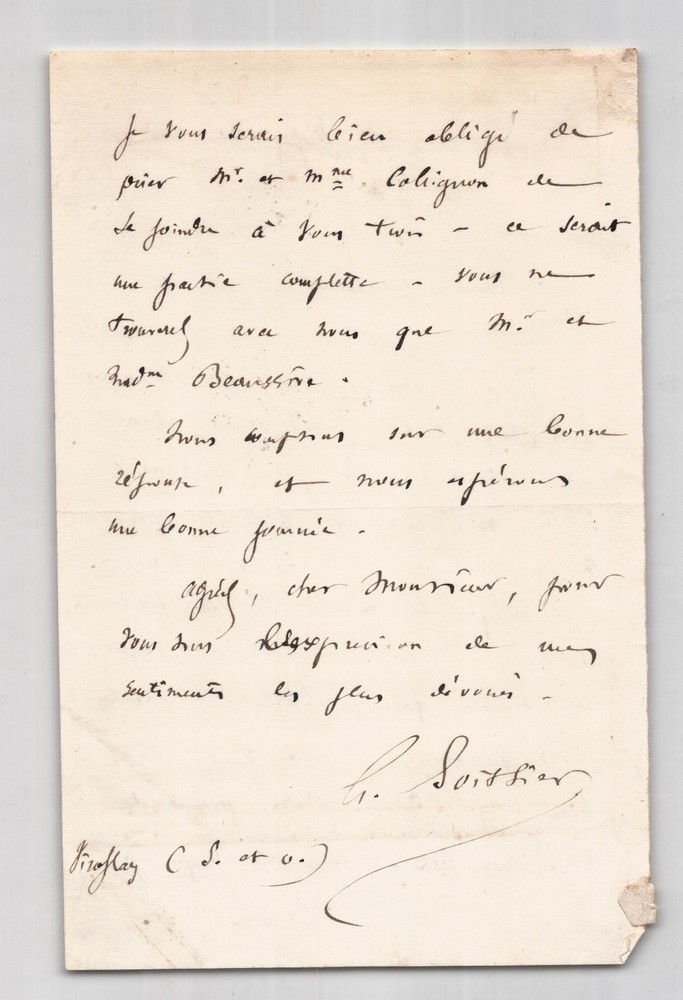 Je vous serais bien obligé de
prier Mr. et Mme. Colignon de
se joindre à vous tous - ce serait
une partie complette - vous ne
trouverez avec nous que Mr. et
Madme Beaussire.
Nous comptons sur une bonne
réponse, et nous espérons
une bonne journée.
Agréez, cher Monsieur, pour
vous tous l'expression de mes
sentiments les plus dévoués -
Viroflay (S. et O.)